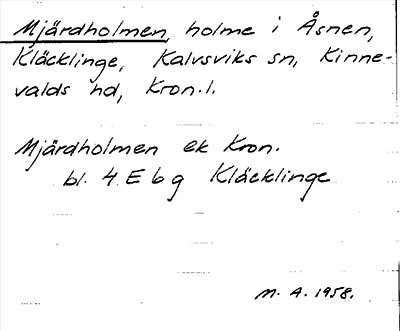 Mjärdholmen, holme i Åsnen,
Kläcklinge, Kalvsviks sn, Kinne-
valds hd, Kron.l.
Mjärdholmen ek Kron.
bl. 4 E b g Kläcklinge
M. A. 1958.